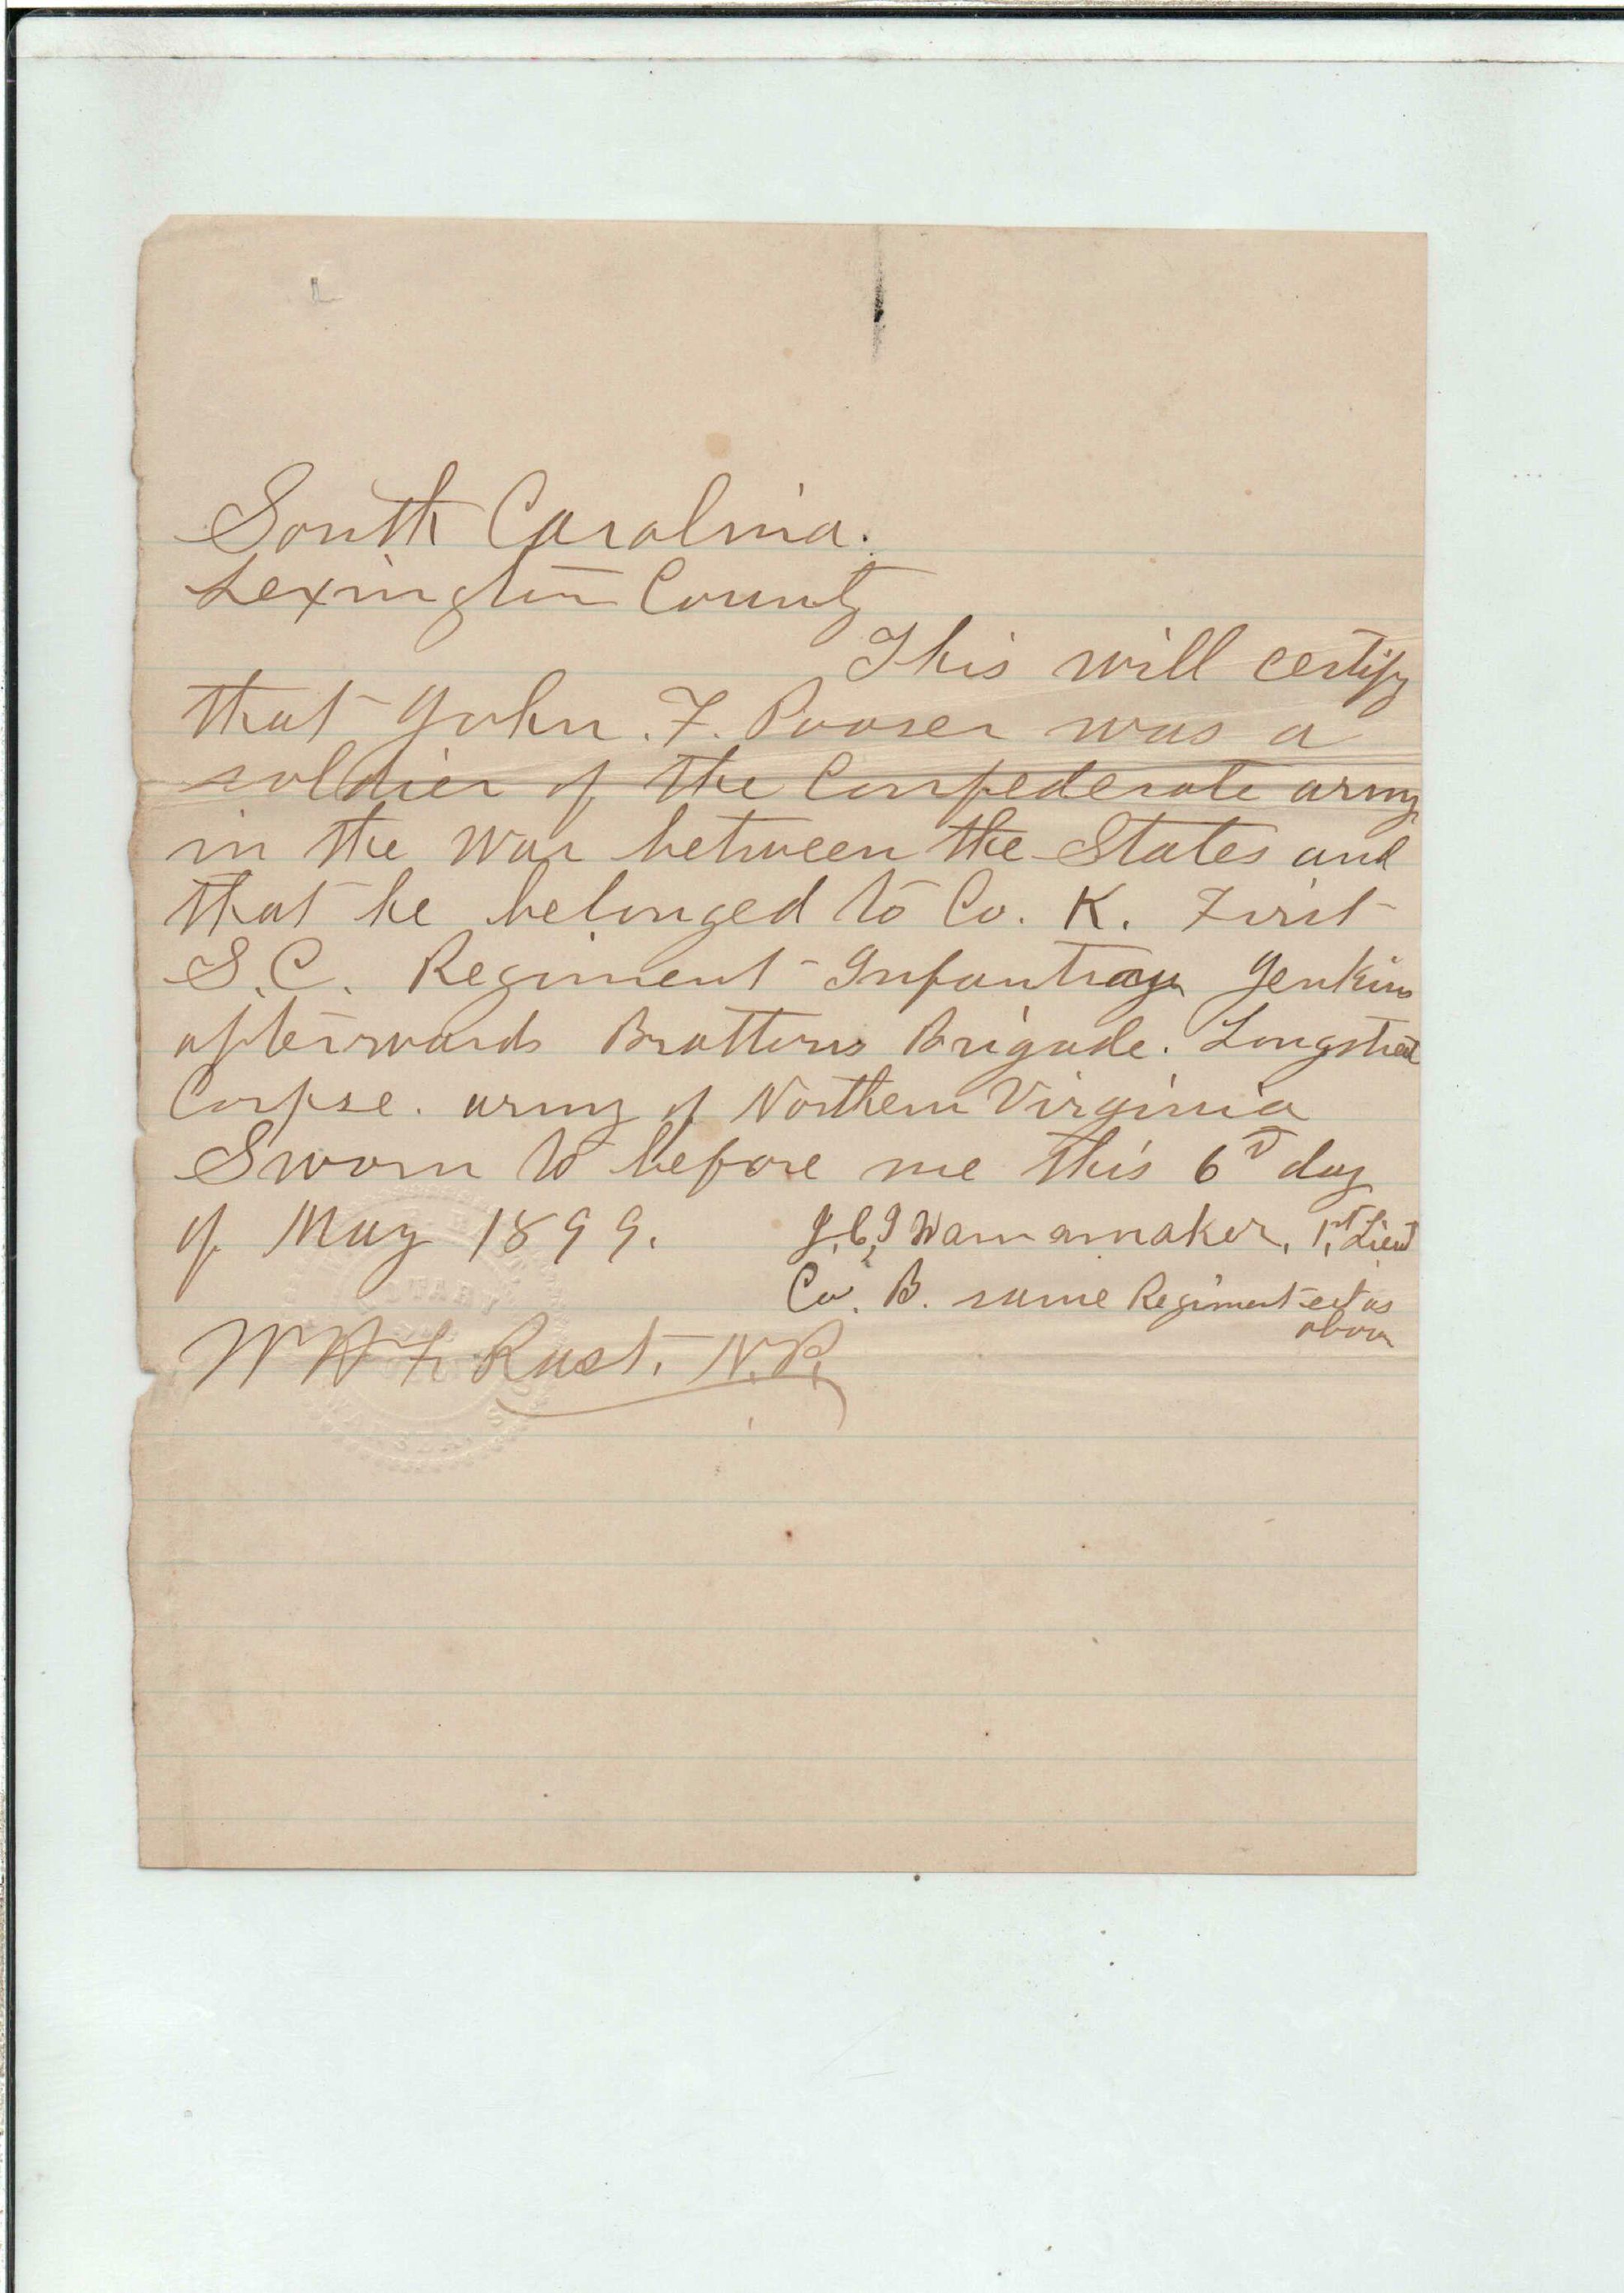 South Carolina.
Lexington County
This will certify
that John. F. Pooser was a
soldier of the Confederate army
in the War between the States and
that he belonged to Co. K. First
S.C. Regiment Infantray Jenkins
afterwards Brattons Brigade. Longstreet
Corpse. army of Northern Virginia
Sworn to before me this 6 day
of May 1899. J.C.J Wannamaker, 1st Lieut
Co. B. same Regiment as
above
Rast. N.P.
NOTARY